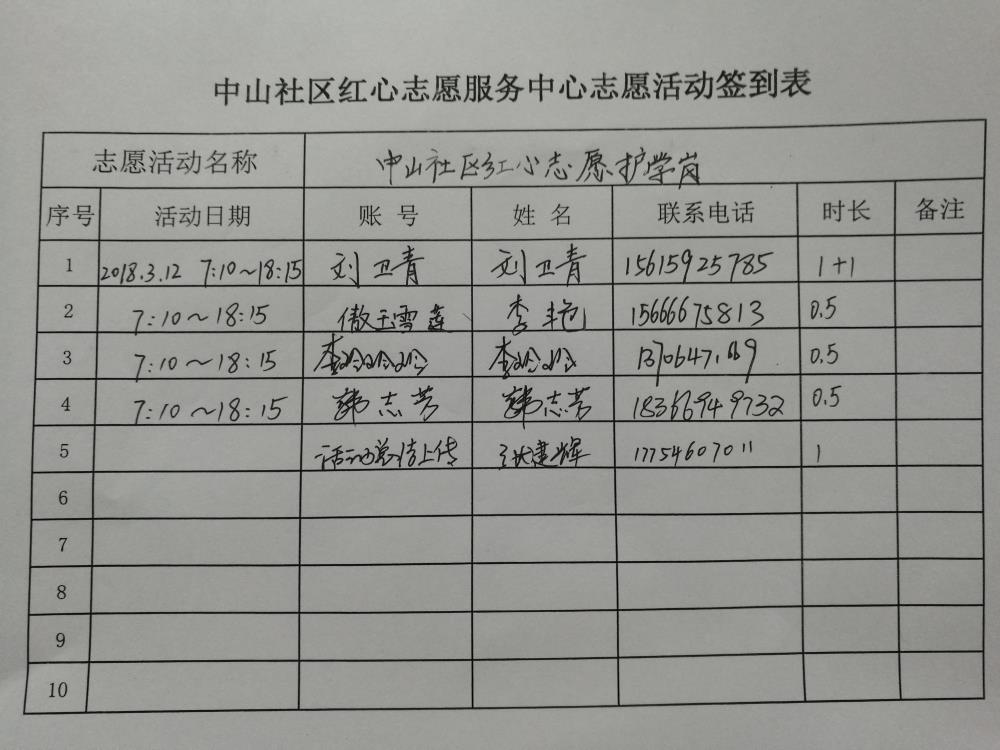 中山社区红心志愿服务中心志愿活动签到表
志愿活动名称 中山社区红心志愿护学岗
序号 活动日期 账号 姓名 联系电话 时长 备注
1 2018.3.12 7:10~18:15 刘卫青 刘卫青 15615925785 1+1
2 7:10~18:15 傲玉雪莲 李艳 15666675813 0.5
3 7:10~18:15 李玲玲玲 李玲玲 0.5
4 7:10~18:15 韩志芳 韩志芳 18366949732 0.5
5 活动总结上传 张建辉 17754607011 1
6
7
8
9
10